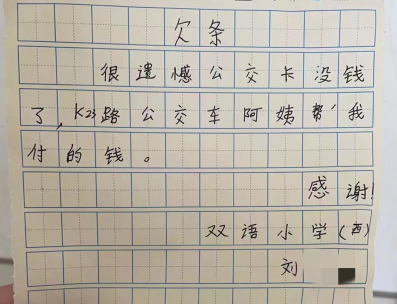 欠条
很遗憾公交卡没钱
了,K23路公交车阿姨帮我
付的钱。
感谢!
双语小学(西)
刘